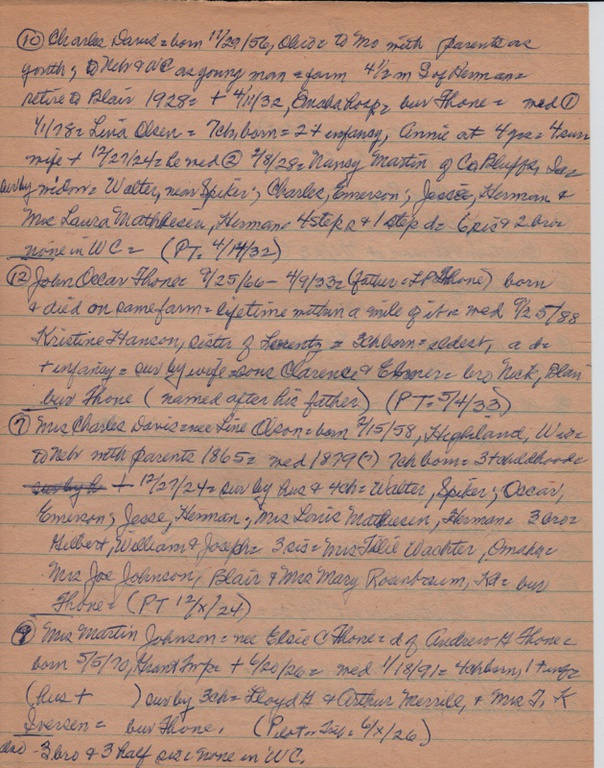 (10) Charles Davis = born 11/29/56, Ohio = to Mo with parents as
youth; to Nebr & WC as young man = farm 4 1/2 m S of Herman =
retire to Blair 1928 = + 4/11/32, Omaha hosp = bur Fhone = med (1)
1/1/78 = Lina Olsen = 7 ch born = 2 + infancy, Annie at 4 yrs = 4 surv
wife + 12/27/24 = he med (2) 2/8/28 = Nancy Martin of Co Bluffs, Ia =
sur by widow = Walter, near Spiker; Charles, Emerson; Jessie, Herman &
Mrs Laura Mathiesen, Herman = 4 step s & 1 step d = 6 sis & 2 bro =
none in WC = (PT = 4/14/32)
(12) John Oscar Fhone = 9/25/66 - 4/9/33 = (father = LP Fhone) born
& died on same farm = lifetime within a mile of it = med 9/25/88
Kristine Hanson, sister of = 3 ch born = eldest, a d =
+ infancy = sur by wife = sons Clarence & Elmer = bro Nick, Blair
bur Fhone (named after his father) (PT = 5/4/33)
(7) Mrs Charles Davis = nee Line Olson = born 2/15/58, Highland, Wis =
to Nebr with parents 1865 = med 1879 (?) 7 ch born = 3 + childhood =
sur by h + 12/27/24 = sur by hus & 4 ch = Walter, Spiker; Oscar,
Emerson; Jesse, Herman; Mrs Louis Mathiesen, Herman = 3 bro =
Gilbert, William & Joseph = 3 sis = Mrs Tillie Wachter, Omaha =
Mrs Joe Johnson, Blair & Mrs Mary Rosenbaum, Ka = bur
Fhone = (PT 12/x/24)
(9) Mrs Martin Johnson = nee Elsie C Fhone = d of Andrew G Fhone =
born 5/5/70, Grant Twp = + 6/20/26 = med 1/18/91 = 4 ch born, 1 + inf =
(hus + ) sur by 3 ch = Lloyd G & Arthur Merrill, & Mrs T. K
Iversen = bur Fhone. (Pilot-Trib = 6/x/26)
also - 3 bro & 3 half sis = none in WC.